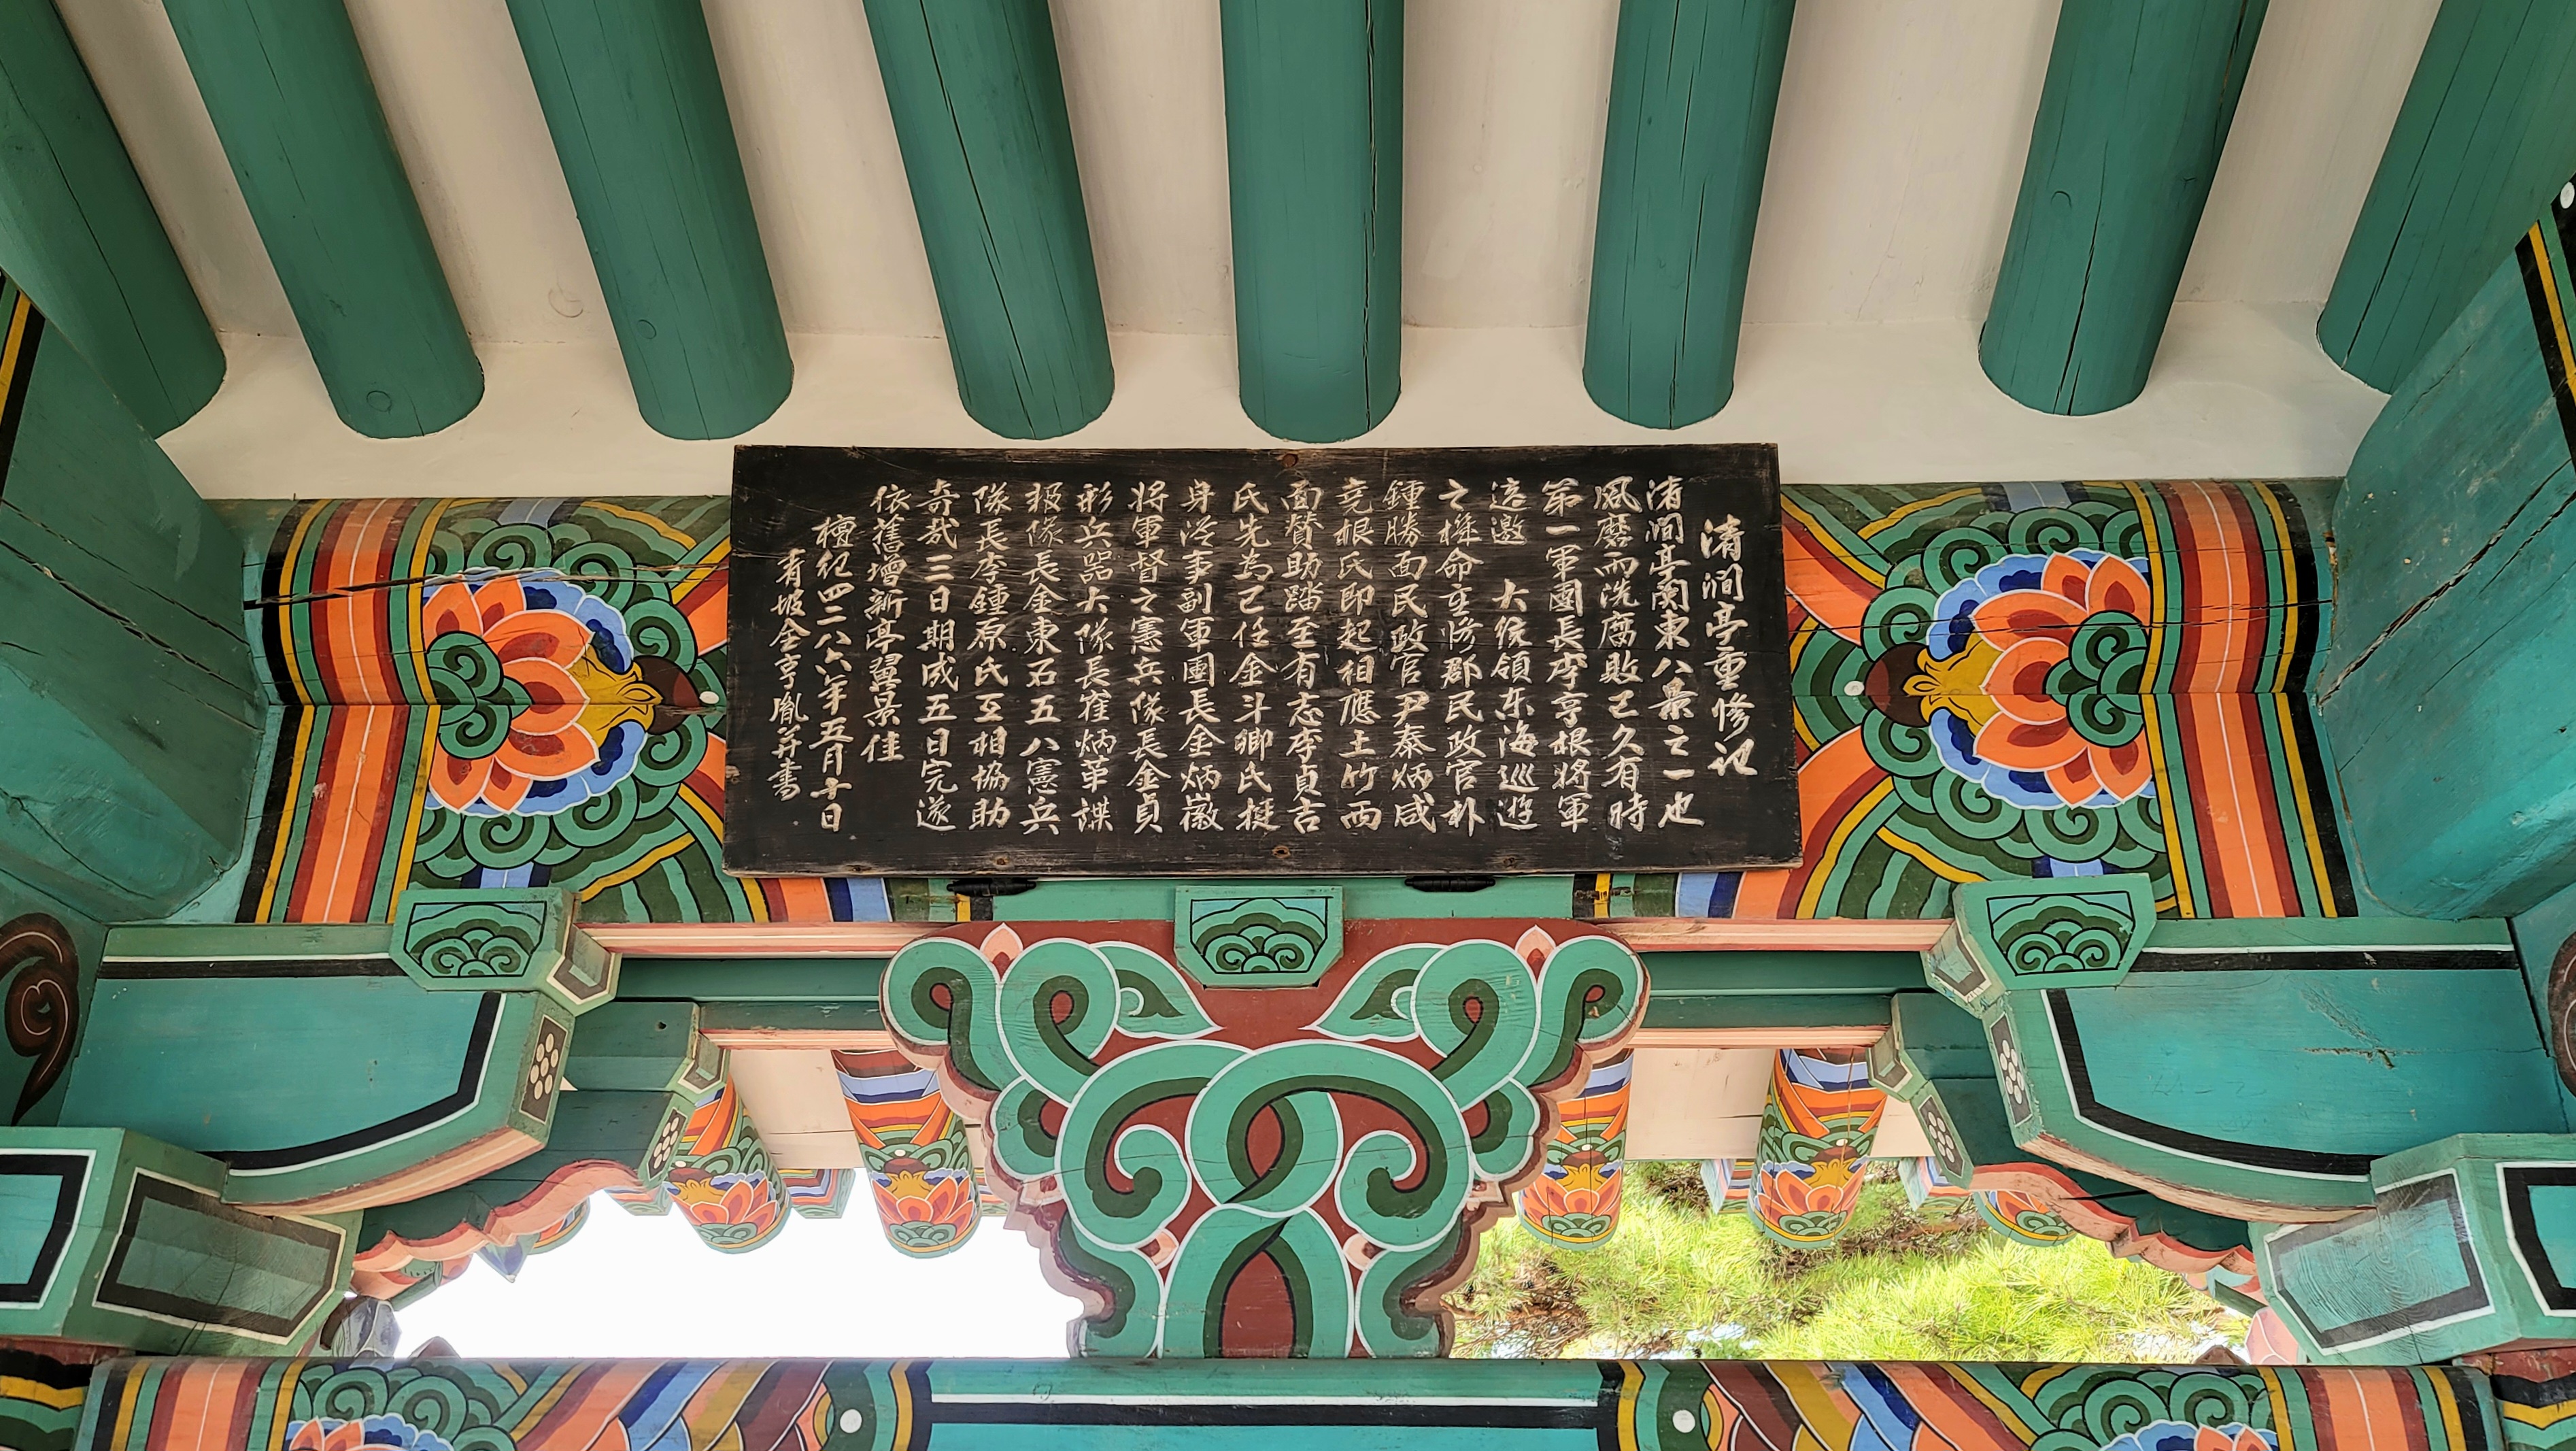 清澗亭重修記
清澗亭関東八景之一也
風磨雨洗腐敗已久有時
第一軍團長李亨根將軍
遠邀 大統領东海巡遊
之 命重修郡民政官朴
鍾勝面民政官尹泰炳咸
竞根氏即起相應土竹両
面賛助踏至有志李貞吉
氏先為己任金斗卿氏挺
身從事副軍團長金炳徽
將軍督之憲兵隊長金貞
彩兵器大隊長崔炳革諜
报隊長金東石五八憲兵
隊長李鍾原氏互相協助
奇哉三日期成五日完遂
依舊增新亭翼景佳
檀紀四二八六年五月十日
青坡金亨胤并書